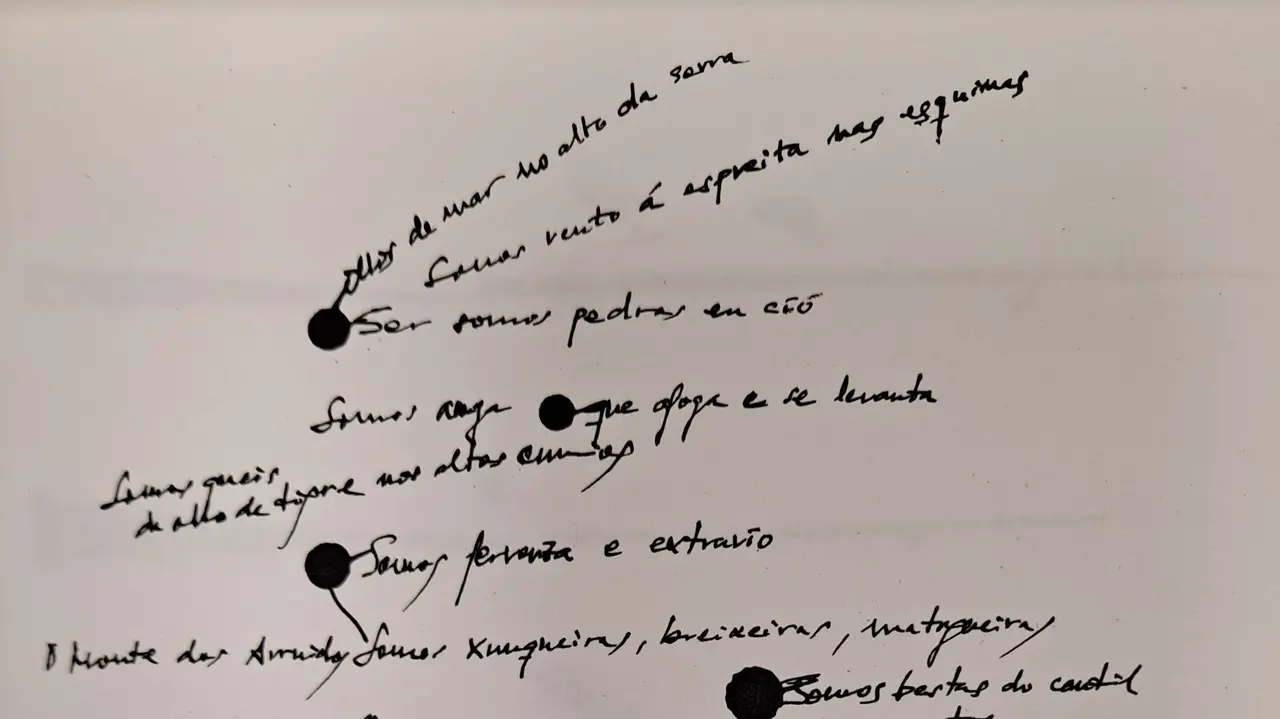 ollos de mar no alto da serra
Somos vento á espreita nas esquinas
Ser somos pedras en cio
Somos auga que afoga e se levanta
Somos
de alto de nos altos cumios
Somos fervenza e extravío
O Monte das Somos xunqueiras, breixeiras, matogueiras
Somos bestas do cantil